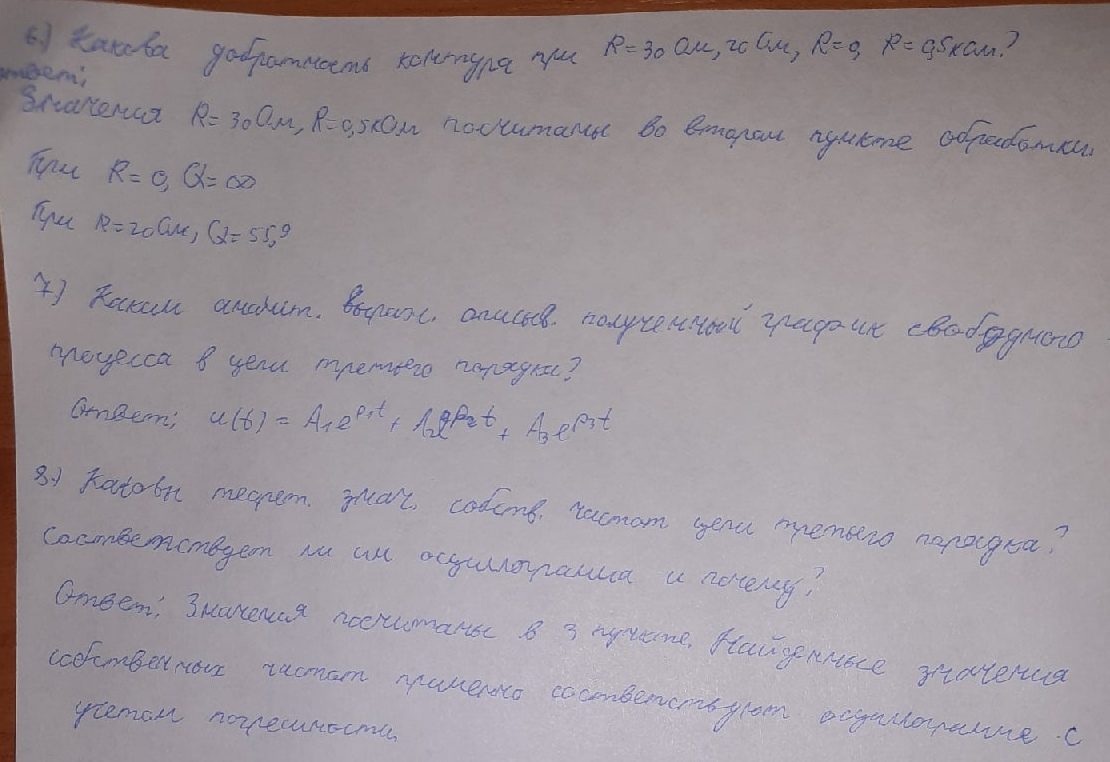 6.) Какова добротность контура при R=30 Ом, 20 Ом, R=0, R=0,5 кОм?
Ответ:
Значения R=30 Ом, R=0,5 кОм посчитаны во втором пункте обработки.
При R=0, Q=∞
При R=20 Ом, Q=55,9
7.) Каким аналит. выраж. описыв. полученный график свободного
процесса в цепи третьего порядка?
Ответ: u(t) = A₁e^p₁t + A₂e^p₂t + A₃e^p₃t
8.) Каковы теорет. знач. собств. частот цепи третьего порядка?
Соответствует ли им осциллограмма и почему?
Ответ: Значения посчитаны в 3 пункте. Найденные значения
собственных частот примерно соответствуют осциллограмме с
учетом погрешности.